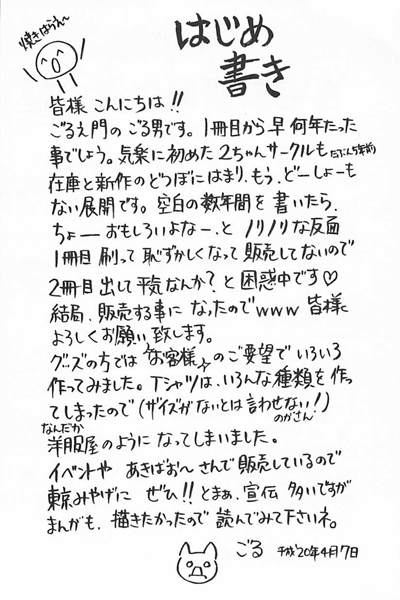 焼きはらえ〜
はじめ
書き
皆様 こんにちは!!
ごるえ門の ごる男です。1冊目から早 何年たった
事でしょう。気楽に初めた2ちゃんサークルも たぶん5年前
在庫と新作のどつぼにはまり、もう、どーしょーも
ない展開です。空白の数年間を書いたら、
ちょーーおもしろいよなー、と ノリノリな反面
1冊目 刷って 恥ずかしくなって 販売してないので
2冊目 出して 平気なんか?と 困惑中です♡
結局、販売する事に なったのでwww 皆様
よろしくお願い致します。
グッズの方では "お客様" のご要望で いろいろ
作ってみました。Tシャツは、いろんな種類を作っ
てしまったので (サイズがないとは言わせない!)
のがさん
なんだか
洋服屋のように なってしまいました。
イベントや あきばお〜 さんで 販売しているので
東京みやげに ぜひ!! とまぁ、宣伝 タタいですが
まんがも、描きたかったので 読んでみて下さいネ。
ごる 平成'20年4月7日